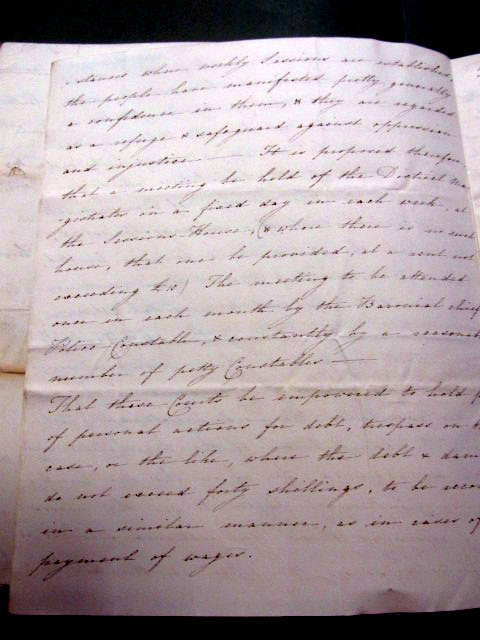 stances where weekly Sessions are established
the people have manifested pretty generally
a confidence in them, & they are regarded
as a refuge & safeguard against oppression
and injustice — It is proposed therefore
that a meeting be held of the District Ma
gistrates on a fixed day in each week, at
the Sessions House, (& where there is no such
house, that one be provided, at a rent not
exceeding £10) The meeting to be attended
once in each month by the Baronial chief
Police Constable, & constantly by a reasonable
number of petty Constables —
That these Courts be empowered to hold
of personal actions for debt, trespass on the
case, or the like, where the debt & dam
do not exceed forty shillings, to be recov
in a similar manner, as in cases of
payment of wages.